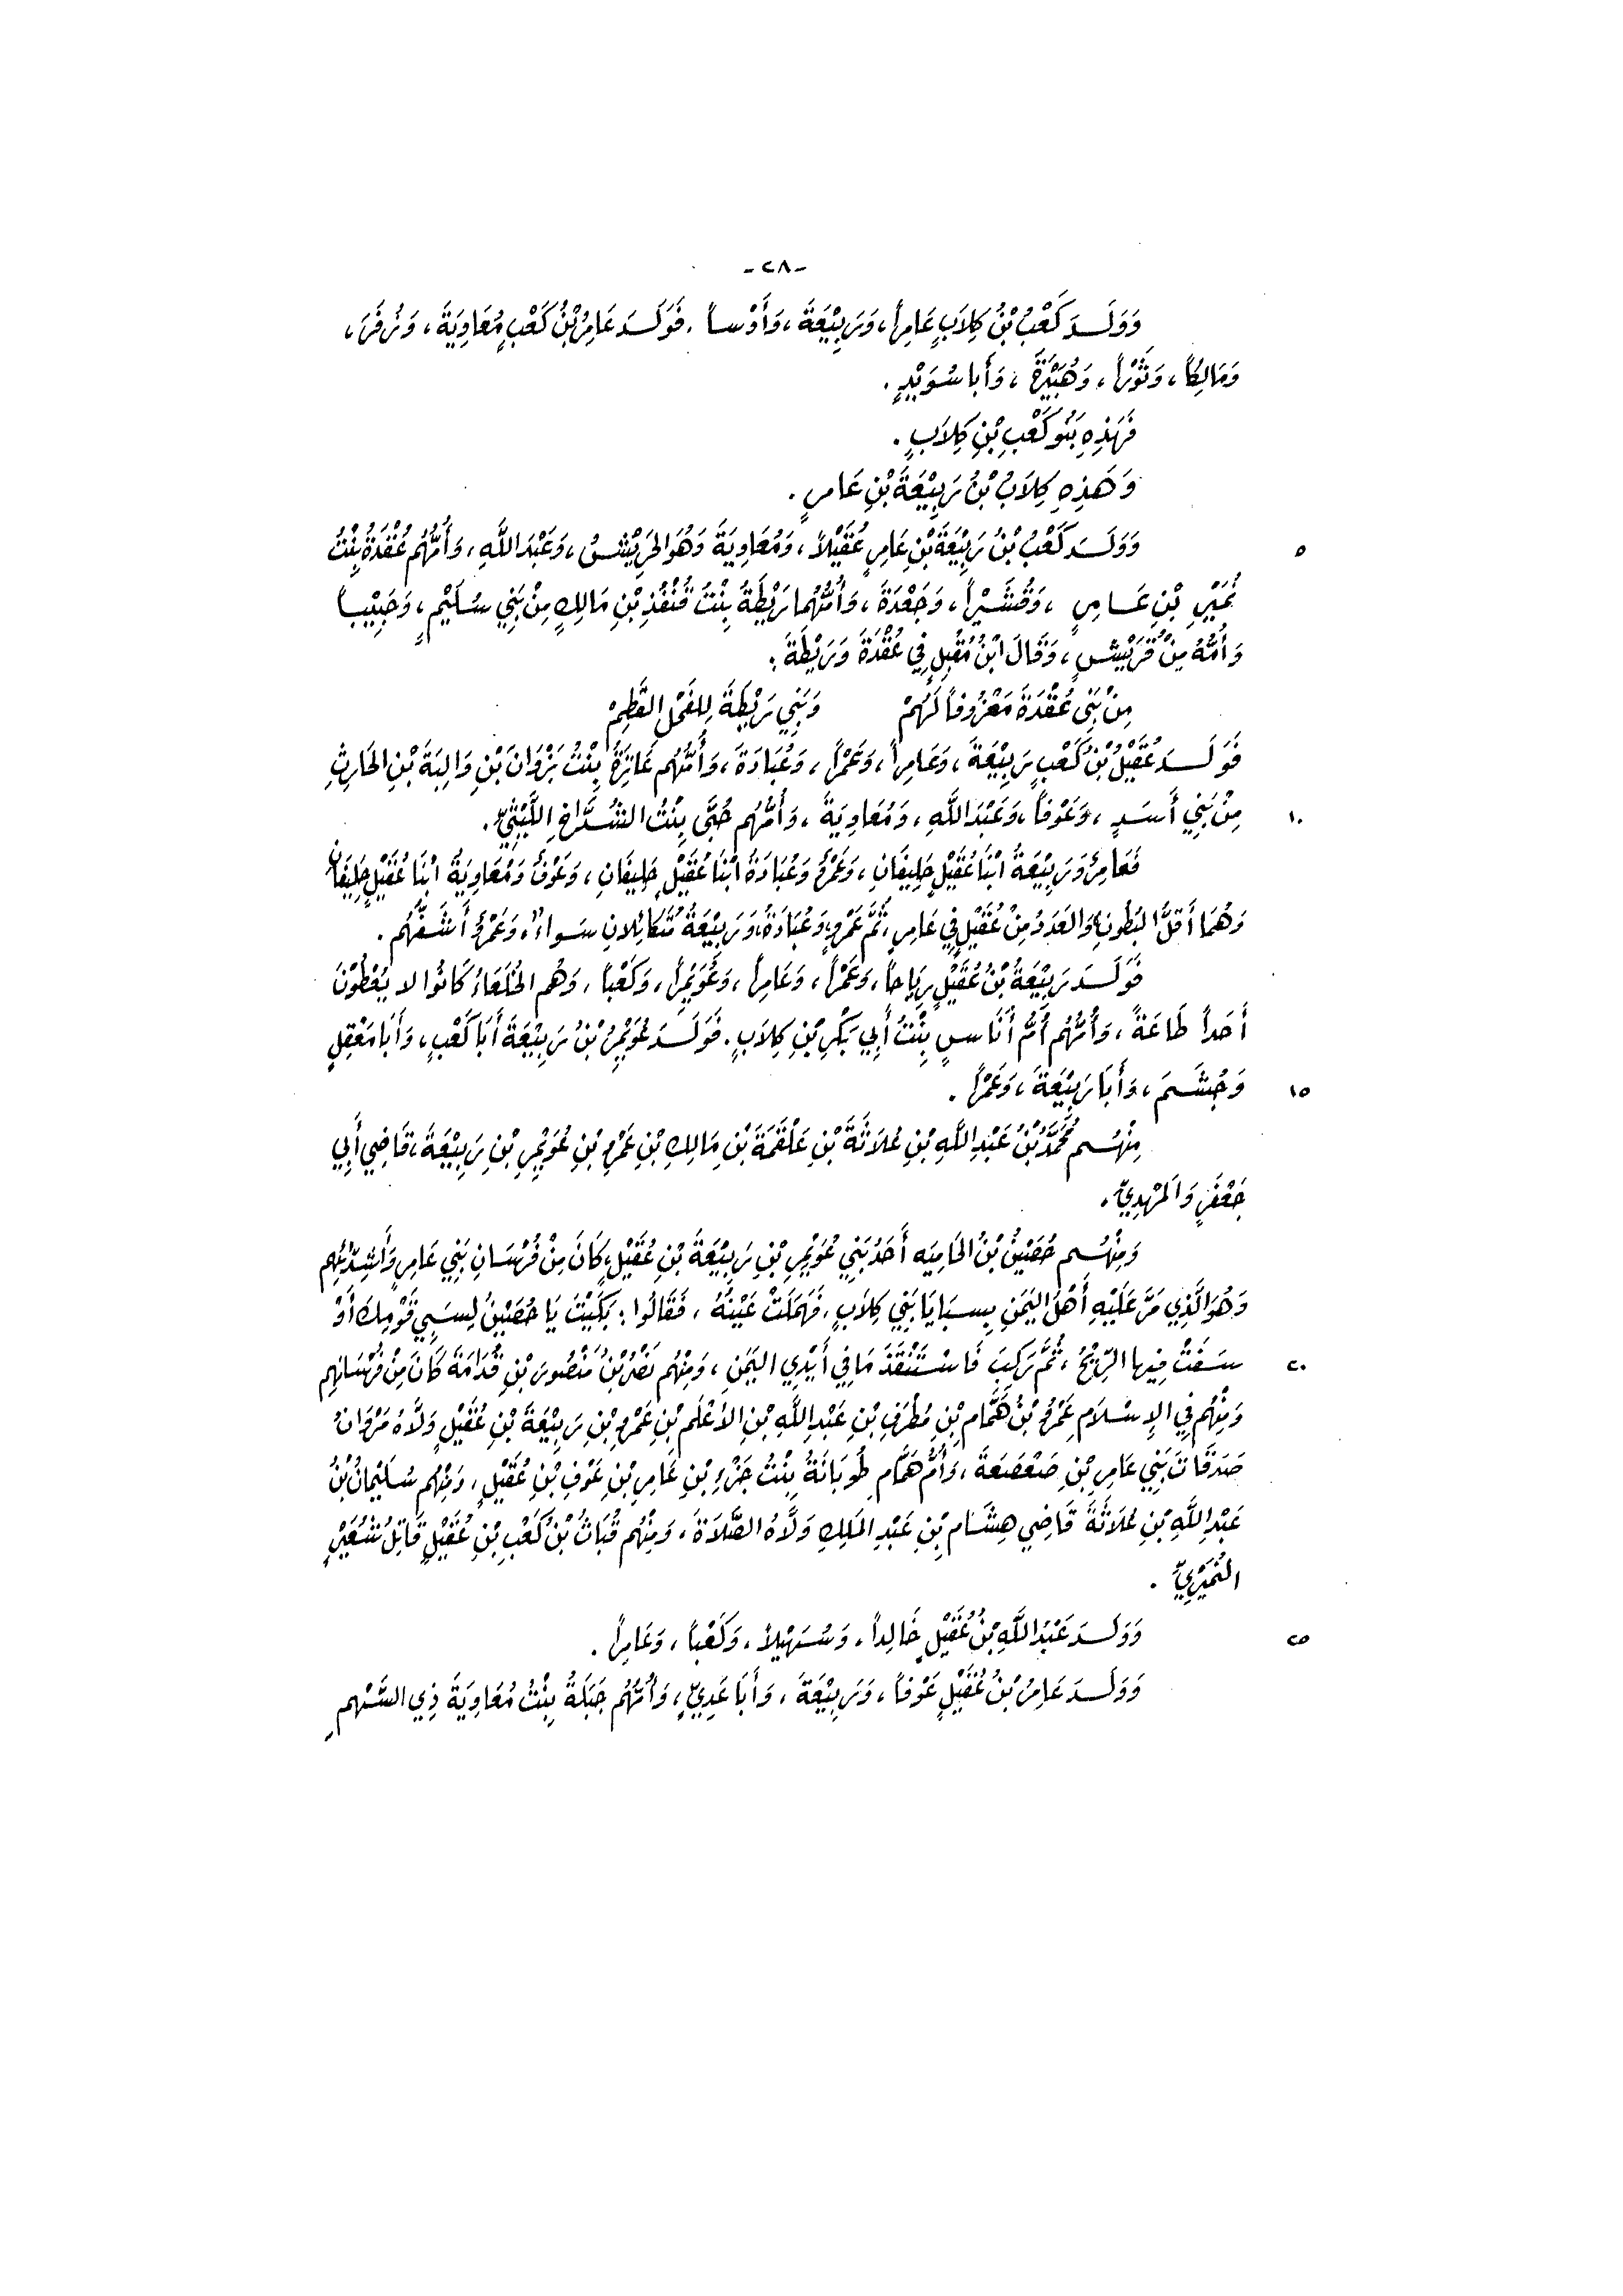 -٢٨-
وَوَلَـدَ كَعْبُ بْنُ كِلَابٍ عَامِراً، وَرَبِيْعَةَ، وَأَوْساً. فَوَلَـدَ عَامِرُ بْنُ كَعْبٍ مُعَاوِيَةَ، وَزُفَرَ،
وَمَالِكاً، وَثَوْراً، وَهُبَيْرَةَ، وَأَبا سُوَيْدٍ.
فَهَذِهِ بَنُو كَعْبِ بْنِ كِلَابٍ.
وَهَذِهِ كِلَابُ بْنُ رَبِيْعَةَ بْنِ عَامِرٍ.
٥ وَوَلَـدَ كَعْبُ بْنُ رَبِيْعَةَ بْنِ عَامِرٍ عُقَيْلاً، وَمُعَاوِيَةَ وَهُوَ الحَرِيْشُ، وَعَبْدَ اللَّهِ، وَأُمُّهُم عُقْدَةُ بِنْتُ
نُمَيْرِ بْنِ عَـامِرٍ، وَقُشَـيْراً، وَجَعْدَةَ، وَأُمُّهُما رَيْطَةُ بِنْتُ قُنْفُذِ بْنِ مَالِكٍ مِنْ بَنِي سُلَيْمٍ، وَحَبِيْباً
وَأُمُّهُ مِنْ قُرَيْشٍ، وَقَالَ ابْنُ مُقْبِلٍ فِي عُقْدَةَ وَرَيْطَةَ:
مِنْ بَنِي عُقْدَةَ مَعْرُوفاً لَهُمْ وَبَنِي رَيْطَةَ لِلفَحْلِ القَطِمْ
فَوَلَـدَ عُقَيْلُ بْنُ كَعْبٍ رَبِيْعَةَ، وَعَامِراً، وَعَمْراً، وَعُبَادَةَ، وَأُمُّهُم عَاتِرَةُ بِنْتُ بَزْوَانَ بْنِ وَالِبَةَ بْنِ الحَارِثِ
١٠ مِنْ بَنِي أَسَـدٍ، وَعَوْفاً، وَعَبْدَ اللَّهِ، وَمُعَاوِيَةَ، وَأُمُّهُم حُبَّى بِنْتُ الشَّدَّاخِ اللَّيْثِيِّ.
فَعَامِرُ وَرَبِيْعَةُ ابْنَا عُقَيْلٍ حَلِيفَانِ، وَعَمْرٌو وَعُبَادَةُ ابْنَا عُقَيْلٍ حَلِيفَانِ، وَعَوْفٌ وَمُعَاوِيَةُ ابْنَا عُقَيْلٍ حَلِيفَانِ
وَهُمَا أَقَلُّ البُطُونِ، وَالعَدَدُ مِنْ عُقَيْلٍ فِي عَامِرٍ، ثُمَّ عَمْرٍو، وَعُبَادَةُ، وَرَبِيْعَةُ مُتَكَائِلَانِ سَواءٌ، وَعَمْرٌو أَشَـفُّهُم.
فَوَلَـدَ رَبِيْعَةُ بْنُ عُقَيْلٍ رِيَاحاً، وَعَمْراً، وَعَامِراً، وَعُوَيْمِراً، وَكَعْباً، وَهُم الخُلَعَاءُ كَانُوا لا يُعْطُوْنَ
أَحَداً طَاعَةً، وَأُمُّهُم أُمُّ أُنَاسٍ بِنْتُ أَبِي بَكْرِ بْنِ كِلَابٍ. فَوَلَـدَ عُوَيْمِرُ بْنُ رَبِيْعَةَ أَبَا كَعْبٍ، وَأَبَا مَعْقِلٍ
١٥ وَجُشَـمَ، وَأَبَا رَبِيْعَةَ، وَعَمْراً.
مِنْهُـم مُحَمَّدُ بْنُ عَبْدِ اللَّهِ بْنِ عُلَاثَةَ بْنِ عَلْقَمَةَ بْنِ مَالِكِ بْنِ عَمْرِو بْنِ عُوَيْمِرِ بْنِ رَبِيْعَةَ، قَاضِي أَبِي
جَعْفَرٍ وَالمَهْدِيِّ.
وَمِنْهُـم حُصَيْنُ بْنُ الحَامِيَه أَحَدُ بَنِي عُوَيْمِرِ بْنِ رَبِيْعَةَ بْنِ عُقَيْلٍ، كَانَ مِنْ فُرْسَانِ بَنِي عَامِرٍ وَأَشِدَّائِهِم
وَهُوَ الَّذِي مَرَّ عَلَيْهِ أَهْلُ اليَمَنِ بِسَبَايَا بَنِي كِلَابٍ، فَهَمَلَتْ عَيْنُهُ، فَقَالُوا: بَكَيْتَ يَا حُصَيْنُ لِسَبِي قَوْمِكَ أَوْ
٢٠ سَفَتْ فِيها الرِّيْحُ، ثُمَّ رَكِبَ فَاسْتَنْقَذَ مَا فِي أَيْدِي اليَمَنِ، وَمِنْهُم نَصْرُ بْنُ مَنْصُورِ بْنِ قُدَامَةَ كَانَ مِنْ فُرْسَانِهِم
وَمِنْهُم فِي الإِسْلَامِ عَمْرُو بْنُ هَمَّامِ بْنِ مُطَرِّفِ بْنِ عَبْدِ اللَّهِ بْنِ الأَعْلَمِ بْنِ عَمْرِو بْنِ رَبِيْعَةَ بْنِ عُقَيْلٍ وَلَّاهُ مَرْوَانُ
صَدَقَاتَ بَنِي عَامِرِ بْنِ صَعْصَعَةَ، وَأُمُّ هَمَّامٍ طُوبَانَةُ بِنْتُ جَزْءِ بْنِ عَامِرِ بْنِ عَوْفِ بْنِ عُقَيْلٍ، وَمِنْهُم سُلَيْمانُ بْنُ
عَبْدِ اللَّهِ بْنِ عُلَاثَةَ قَاضِي هِشَامِ بْنِ عَبْدِ المَلِكِ وَلَّاهُ الصَّلَاةَ، وَمِنْهُم قُبَاثُ بْنُ كَعْبِ بْنِ عُقَيْلٍ قَاتِلُ شُعَيْرٍ
النُّمَيْرِيِّ.
٢٥ وَوَلَـدَ عَبْدُ اللَّهِ بْنُ عُقَيْلٍ خَالِداً، وَسُهَيْلاً، وَكَعْباً، وَعَامِراً.
وَوَلَـدَ عَامِرُ بْنُ عُقَيْلٍ عَوْفاً، وَرَبِيْعَةَ، وَأَبَا عَدِيٍّ، وَأُمُّهُم جَبَلَةُ بِنْتُ مُعَاوِيَةَ ذِي السَّهْمِ